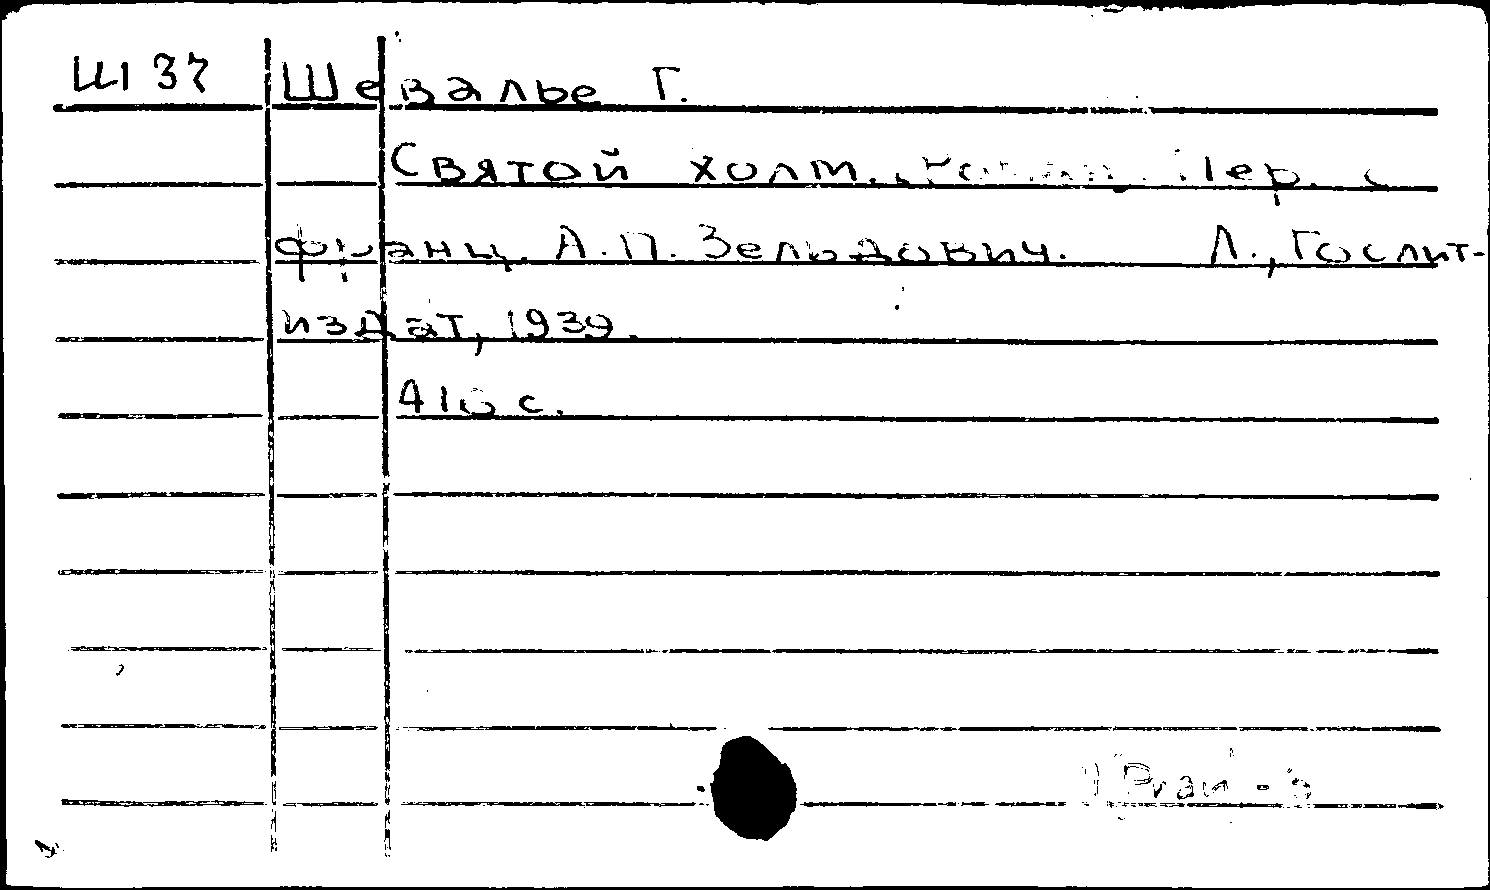 Ш 37 Шевалье Г.
Святой холм. Роман. Пер. с
франц. А.П. Зельдович. Л., Гослит-
издат, 1939.
416 с.